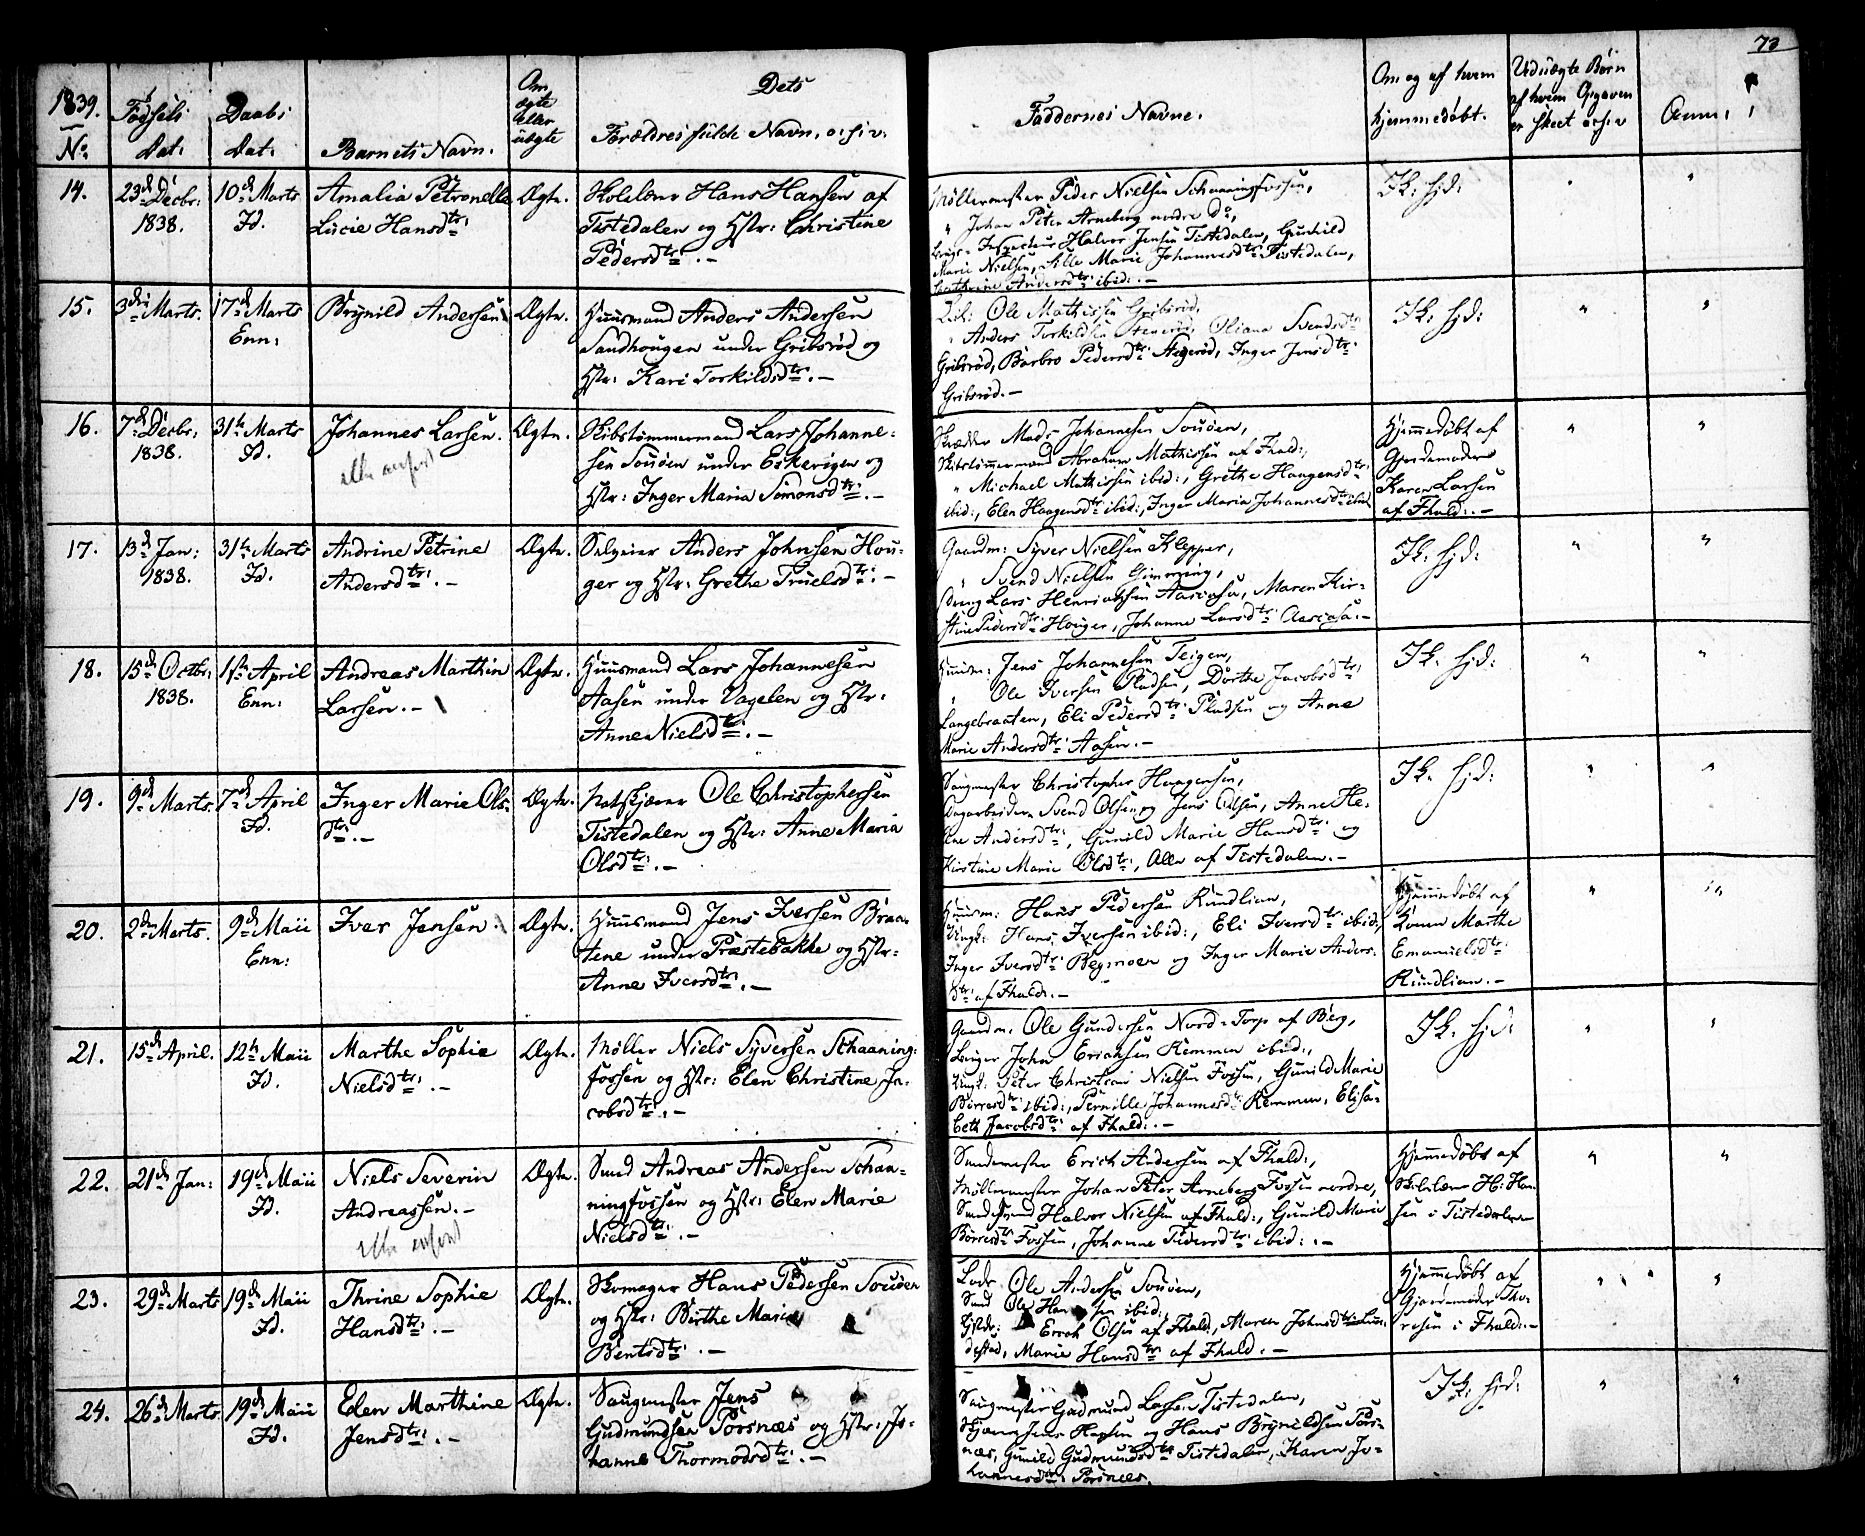 73
1839.
No.
Fødsels Dat:
Daabs Dat:
Barnets Navn.
Om ægte eller uægte
Dets Forældres fulde Navn, o: s: v:
Faddernes Navne.
Om og af hvem hjemmedøbt.
Ved uægte Børn af hvem Opgaven er skeet o: s: v
Anm:
14.
23d Decbr: 1838.
10d Marts Fd.
Amalia Petronelle
Lucie Hansdtr:
Ægte.
Skolelærer Hans Hansen af
Tistedalen og Hstr: Christine
Pedersdtr: .-
Møllermester Peder Nielsen Schaaningfossen,
" Johan Peter Arneberg nordre Do,
Inspecteur Halvor Jensen Tistedalen, Gunhild
Marie Nielsen, Marie Johannesdtr: Tistedalen,
Cathrine Andersdtr: ibid: .-
Ik: hjd:
15.
3die Marts.
17d Marts
Enn:
Brynild Andersen
Ægte.
Huusmand Anders Andersen
Sandhougen under Gribsrød og
Hstr: Kari Torkildsdtr: .-
Ole Mathissen Gribsrød,
" Anders Torkildsen Oliana Svendsdtr:
Gribsrød, Barbro Pedersdtr: Inger Jensdtr:
Gribsrød.-
Ik: hjd:
16.
7d Decbr: 1838.
31te Marts
Johannes Larsen.
Ægte.
Skibstømmermand Lars Johanne-
sen Souøen under Eskevigen og
Hstr: Inger Maria Simonsdtr: .-
Skrædder Mads Johannesen Souøen,
Skibstømmermand Abraham Mathissen af Fhald:,
" Michael Mathissen ibid:, Grethe Haagensdtr:
ibid:, Elen Haagensdtr ibid:, Inger Maria Johannesdtr ibid
Hjemmedøbt af
Gjordemoder
Karen Larsen
af Fhald: .-
17.
13d Jan: 1838.
31te Marts
Fd.
Andrine Petrine
Andersdtr: .-
Ægte.
Selveier Anders Johnsen Hou-
ger og Hstr: Grethe Truelsdtr: .-
Gaardm: Syver Nielsen Klepper,
" Svend Nielsen
Dreng Lars Henriksen Maren Kir-
stine Pedersdtr: Houger, Johanne Larsdtr:
Ik: hjd:
18.
15d Octbr: 1838.
1ste April
Enn:
Andreas Marthin
Larsen.-
Ægte.
Huusmand Lars Johannesen
Aasen under Vagelen og Hstr:
Anne Nielsdtr: .-
Huusm: Jens Johannesen Teigen,
" Ole Iversen Pladsen, Dorthe Jacobsdtr:
Langebraaten, Eli Pedersdtr: Pladsen og Anne
Marie Andersdtr: Aasen.-
Ik: hjd:
19.
9d Marts.
7d April
Fd.
Inger Marie Ols-
dtr: .-
Ægte.
Ole Christophersen
Tistedalen og Hstr: Anne Maria
Olsdtr: .-
Saugmester Christopher Haagensen,
Dagarbeidere Svend Olsen og Jens Olsen, Anne He-
lene Andersdtr:, Gunild Marie Hansdtr: og
Kirstine Marie Olsdtr:, Alle af Tistedalen.-
Ik: hjd:
20.
2den Marts.
9d Maii
Enn:
Iver Jensen.
Ægte.
Huusmand Jens Iversen Braa-
tene under Præstebakke og Hstr:
Anne Iversdtr: .-
Huusm: Hans Pedersen Rundlien,
Ungk: Hans Iversen ibid:, Eli Iversdtr: ibid:,
Inger Iversdtr: og Inger Marie Anders-
dtr: af Fhald: .-
Hjemmedøbt af
Konen Marthe
Emanuelsdtr:
Rundlien.-
21.
15d April.
12te Maii
Fd.
Marthe Sophie
Nielsdtr: .-
Ægte.
Møller Niels Syversen Schaaning-
fossen og Hstr: Elen Christine Ja-
cobsdtr: .-
Gaardm: Ole Gundersen Nord-Torp af Berg,
John Ericksen Remmen ibid:,
Ungk: Peter Christian Nielsen Fossen, Gunild Marie
Børresdtr: ibid:, Pernille Johannesdtr: Remmen, Elisa-
beth Jacobsdtr: af Fhald: .-
Ik: hjd:
22.
21d Jan:
19d Maii
Fd.
Niels Severin
Andreassen.-
Ægte.
Smed Andreas Andersen Schaa-
ningfossen og Hstr: Elen Marie
Nielsdtr: .-
Smedemester Erich Andersen af Fhald:,
Møllermester Johan Peter Arneberg Fossen nordre,
Smedsvend Halvor Nielsen af Fhald:, Gunild Marie
Børresdtr Fossen, Johanne Pedersdtr: ibid: .-
Hjemmedøbt af
Skolelærer H: Han-
sen i Tistedalen
23.
29d Marts
19d Maii
Fd.
Thrine Sophie
Hansdtr: .-
Ægte.
Skomager Hans Pedersen Souøen
og Hstr: Birthe Marie
Bentsdtr: .-
Lods Ole Andersen Souøen,
Smed Ole Hansen ibid:,
Erick Olsen af Fhald, Maren Johnsdtr:
Marie Hansdtr: af Fhald.-
Hjemmedøbt af
Gjordemoder Tho-
resen i Fhald: .-
24.
26d Marts
19d Maii
Fd.
Elen Marthine
Jensdtr: .-
Ægte.
Saugmester Jens
Gudmundsen Porsnæs og Hstr: Jo-
hanne Thormodsdtr: .-
Saugmester Gudmund Larsen Tistedalen,
Jens Hansen og Hans Brynildsen Pors-
næs, Gunild Gudmundsdtr Tistedalen, Karen Jo-
hannesdtr: Porsnæs.
Ik: hjd: